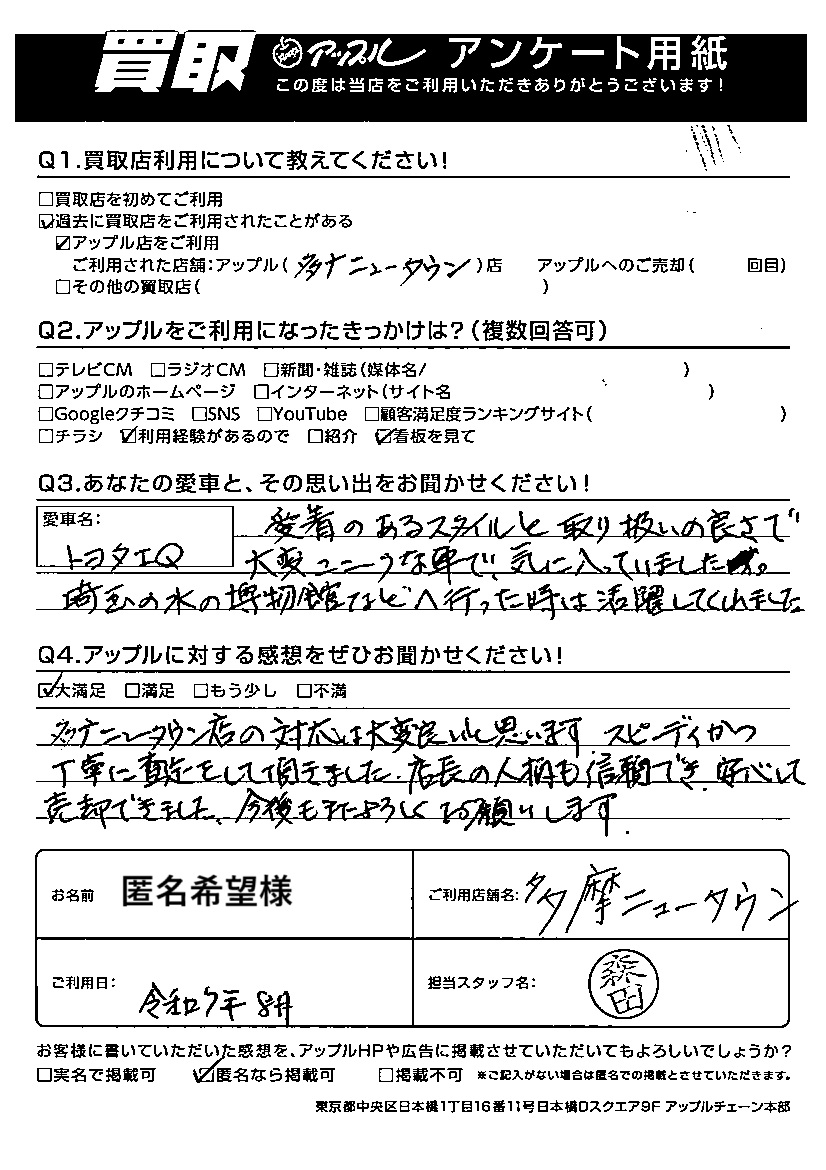 買取 アップル アンケート用紙
この度は当店をご利用いただきありがとうございます!
Q1.買取店利用について教えてください!
□買取店を初めてご利用
☑過去に買取店をご利用されたことがある
☑アップル店をご利用
ご利用された店舗:アップル( 多ナニュータウン )店 アップルへのご売却( 回目)
□その他の買取店( )
Q2.アップルをご利用になったきっかけは?(複数回答可)
□テレビCM □ラジオCM □新聞・雑誌(媒体名/ )
□アップルのホームページ □インターネット(サイト名 )
□Googleクチコミ □SNS □YouTube □顧客満足度ランキングサイト( )
□チラシ ☑利用経験があるので □紹介 ☑看板を見て
Q3.あなたの愛車と、その思い出をお聞かせください!
愛車名: 愛着のあるスタイルと取り扱いの良さで
トヨタIQ 大変ユニークな車で、気に入っていました。
埼玉の水の博物館などへ行った時は活躍してくれました
Q4.アップルに対する感想をぜひお聞かせください!
☑大満足 □満足 □もう少し □不満
多ナニュータウン店の対応は大変良いと思います スピーディかつ
丁寧に査定をして頂きました.店長の人柄も信頼でき、安心して
売却できました、今後もまたよろしくお願いします.
お名前 匿名希望様 ご利用店舗名: 多摩ニュータウン
ご利用日: 令和7年8月 担当スタッフ名: 森田
お客様に書いていただいた感想を、アップルHPや広告に掲載させていただいてもよろしいでしょうか?
□実名で掲載可 ☑匿名なら掲載可 □掲載不可 ※ご記入がない場合は匿名での掲載とさせていただきます。
東京都中央区日本橋1丁目16番11号日本橋Dスクエア9F アップルチェーン本部